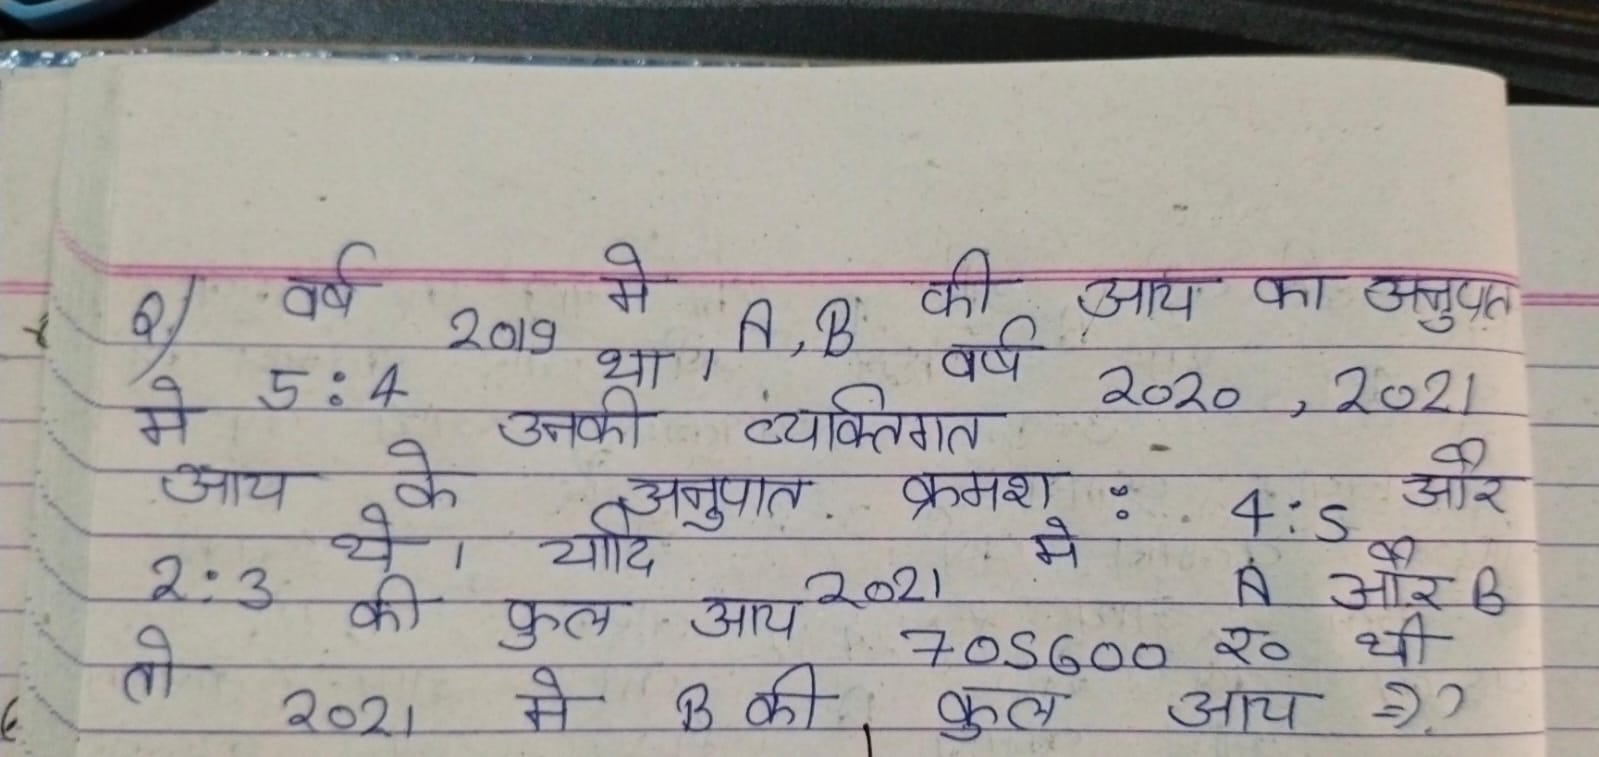 Q) वर्ष 2019 मे A, B की आय का अनुपात
5:4 था, वर्ष 2020, 2021
मे उनकी व्यक्तिगत
आय के अनुपात क्रमश: 4:5 और
2:3 थे। यादि 2021 मे A और B
की कुल आय 705600 रु० थी
तो 2021 मे B की कुल आय =>?